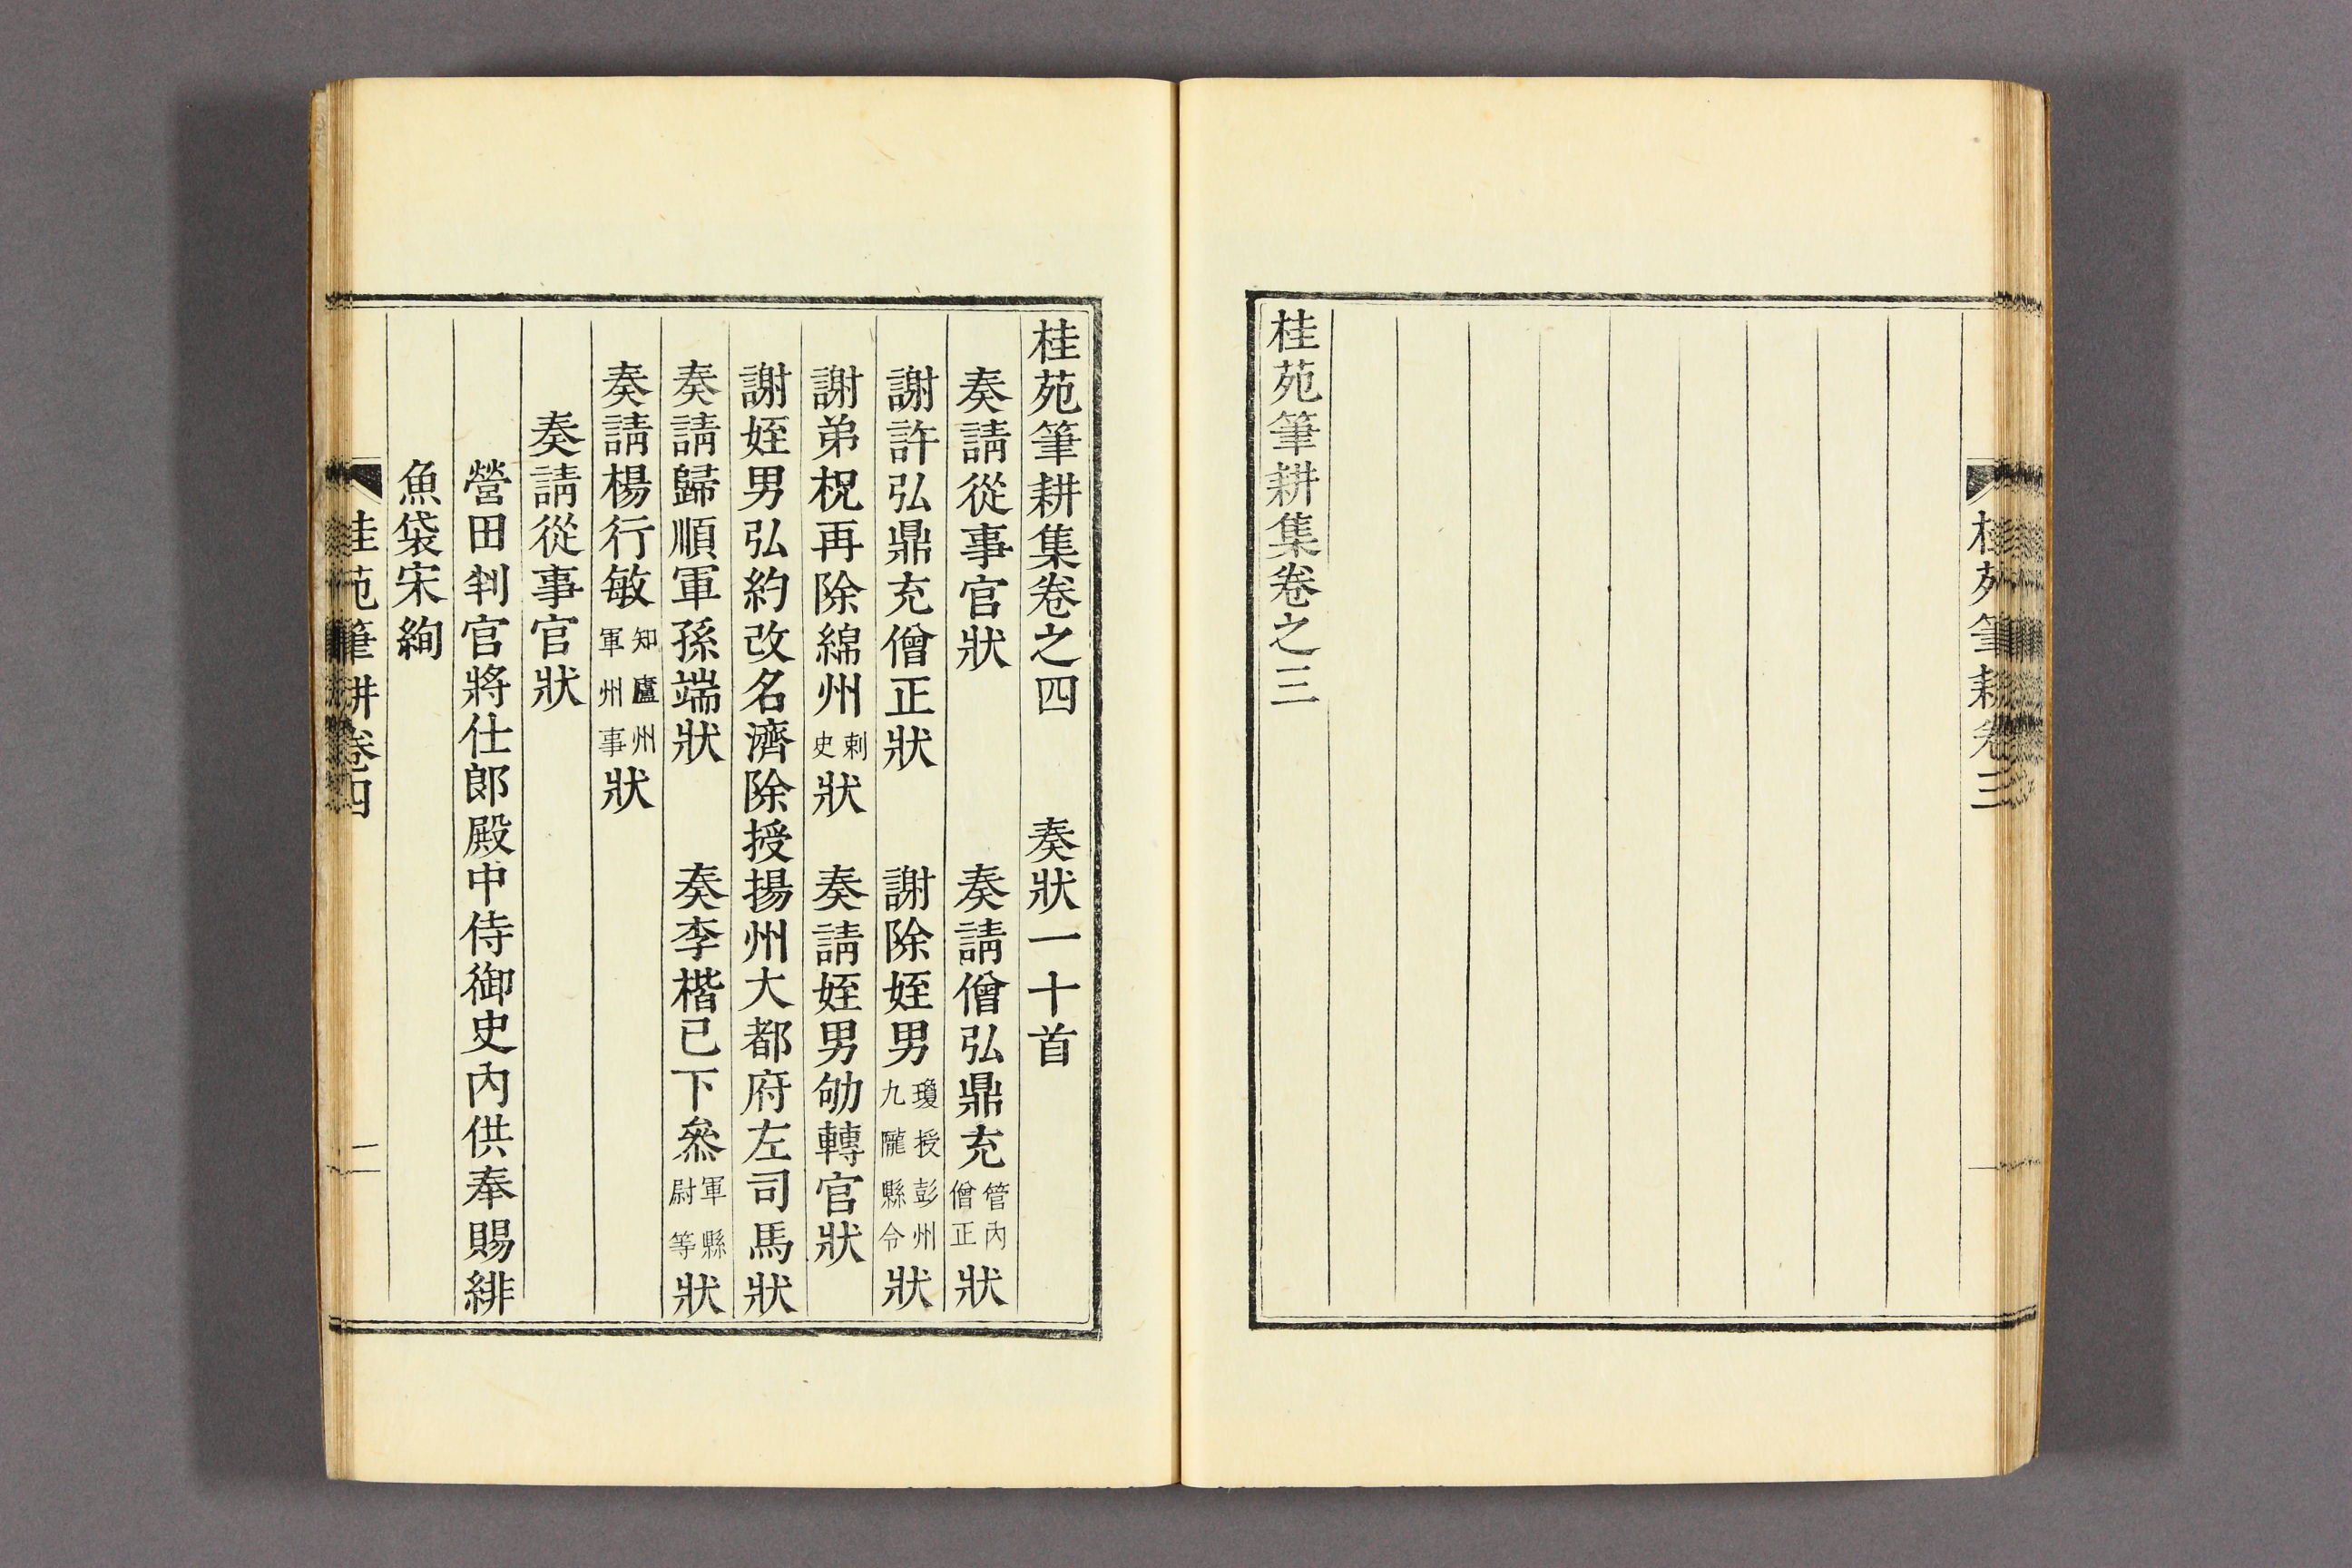 桂苑筆耕卷三
桂苑筆耕集卷之三
桂苑筆耕集卷之四 奏狀一十首
奏請從事官狀 奏請僧弘鼎充管內僧正狀
謝許弘鼎充僧正狀 謝除姪男瓊授彭州九隴縣令狀
謝弟柷再除綿州刺史狀 奏請姪男劬轉官狀
謝姪男弘約改名濟除授揚州大都府左司馬狀
奏請歸順軍孫端狀 奏李楷已下叅軍縣尉等狀
奏請楊行敏知廬州軍州事狀
奏請從事官狀
營田判官將仕郎殿中侍御史內供奉賜緋
魚袋宋絢
桂苑筆耕卷四